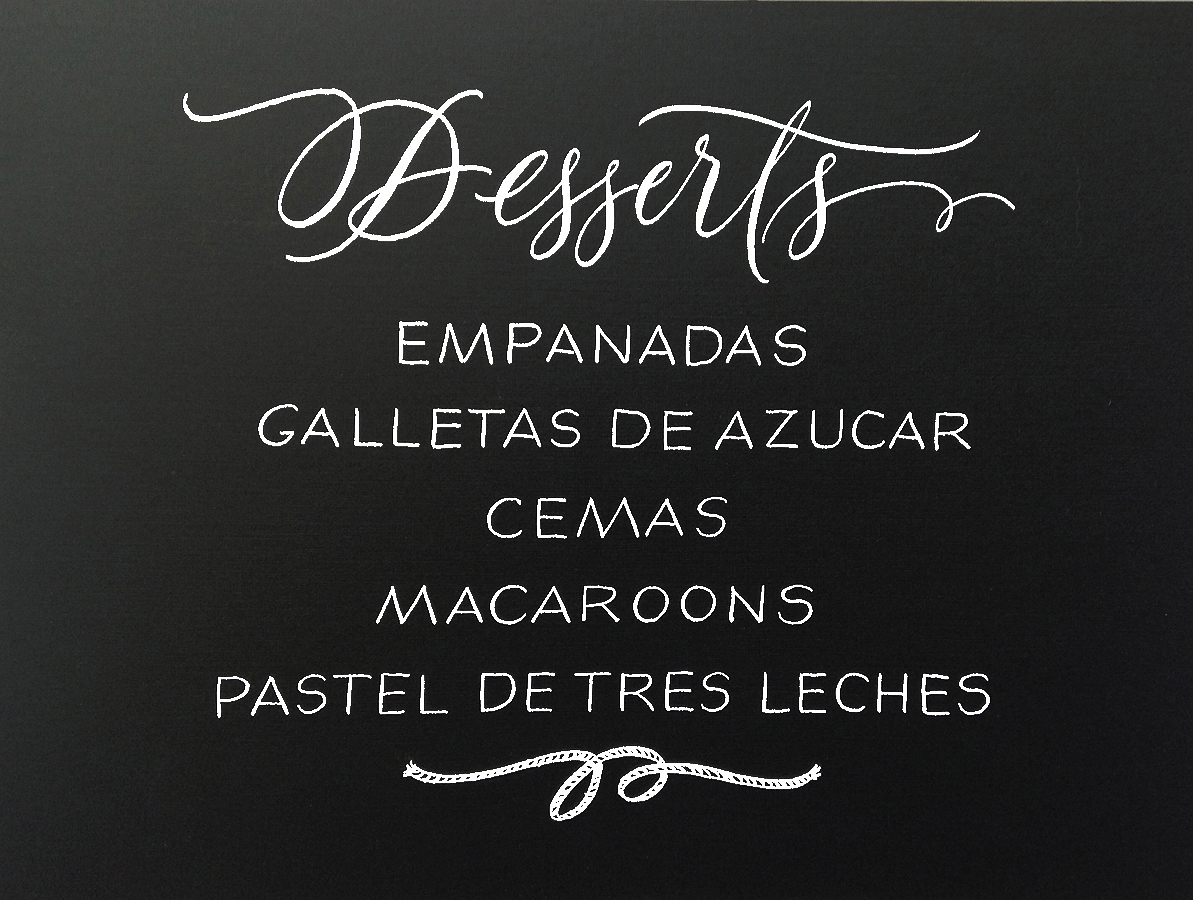 Desserts
EMPANADAS
GALLETAS DE AZUCAR
CEMAS
MACAROONS
PASTEL DE TRES LECHES